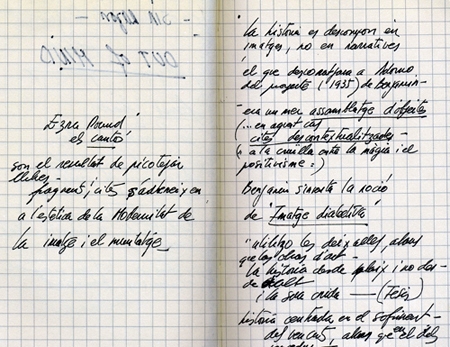 OUT of MIND
Ezra Pound
els cantó
són el resultat de picotejar
llibres-
fragments, cites s'adhereixen
a l'estètica de la Modernitat de
la imatge i el muntatge
La història es descompon en
imatges, no en narratives
el que a Adorno
del projecte (1935) de Benjamin-
era un mer assemblatge d'objectes
(...en aquest cas
cites descontextualitzades-
(a la cruïlla entre la màgia i el
positivisme:)
Benjamin la noció
de "Imatge dialectica"
"utilitzo les deixalles, abans
que les obres d'art-
la història desde baix i no des-
de dalt
i la seva crida — (Tesis)
història centrada en el sofriment
dels vençuts, abans que en el dels